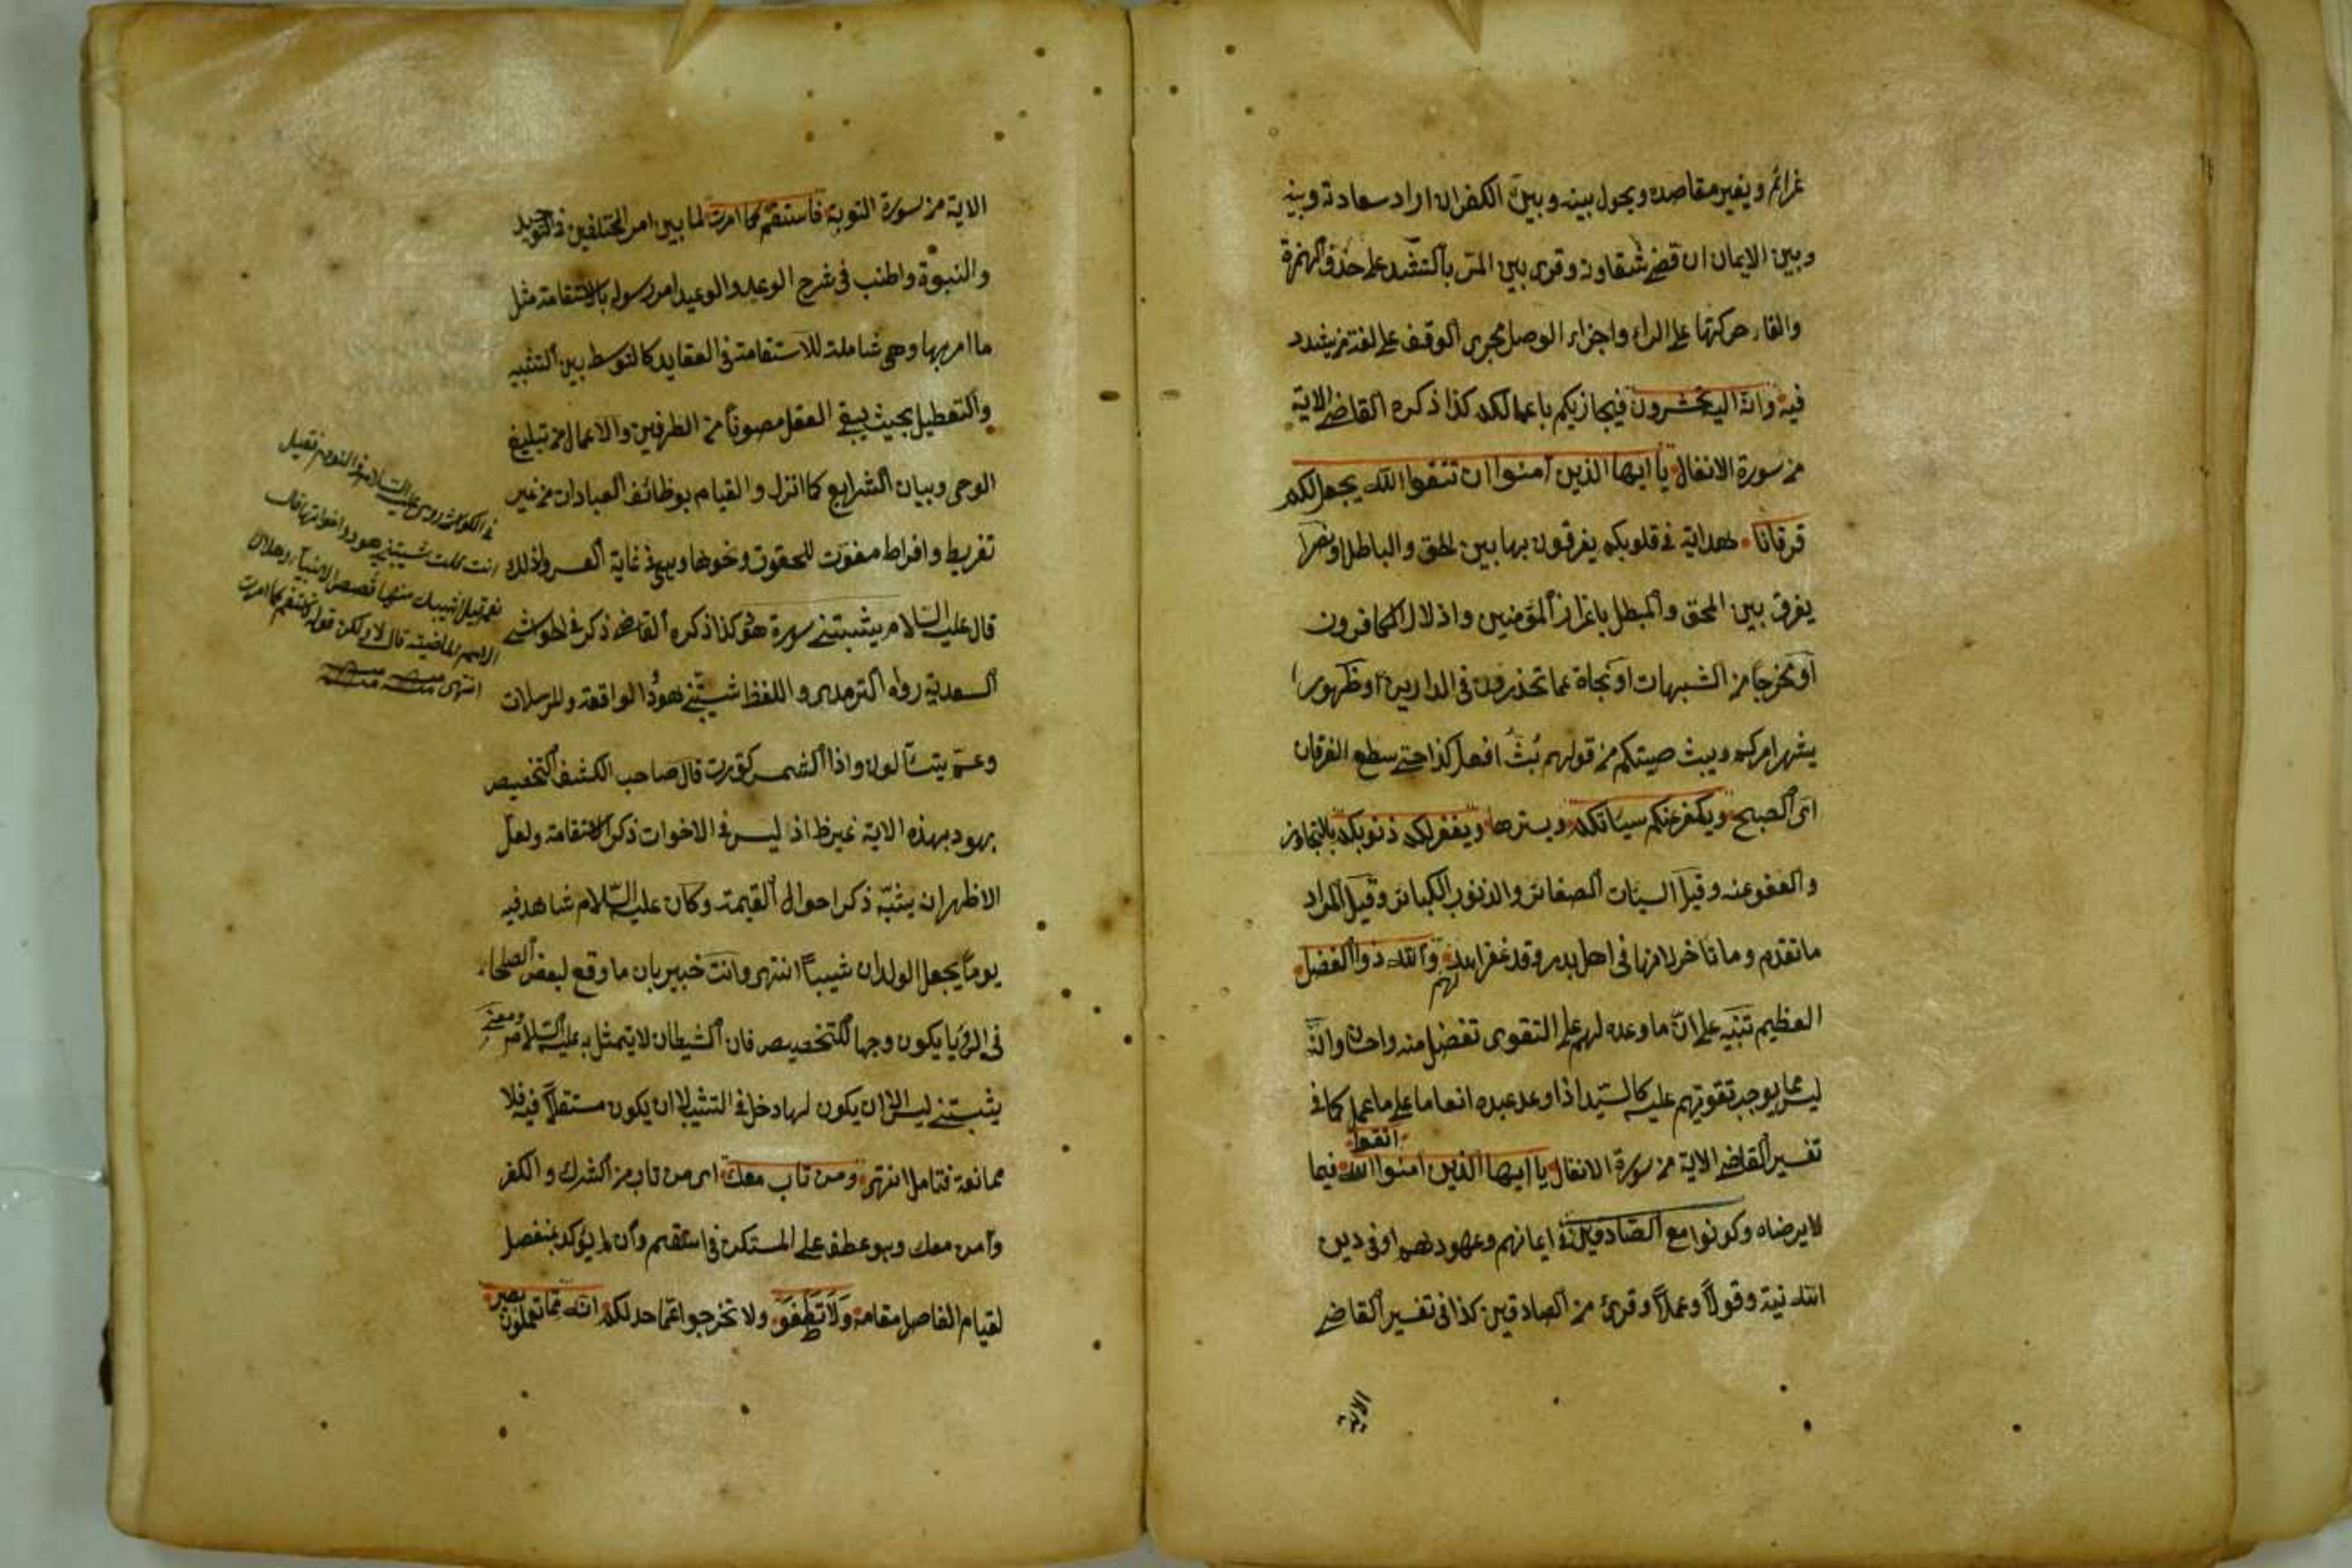 غرائم ويغير مقاصده ويحول بينه وبين الكفر ان اراد سعادته وبينه
وبين الايمان ان قضى شقاوته وقرئ بين المرّ بالتشديد على حذف الهمزة
والقاء حركتها على الراء واجراء الوصل مجرى الوقف على لغة من يشدد
فيه وانه اليه تحشرون فيجازيكم باعمالكم كذا ذكره القاضى الاية
من سورة الانفال يا ايها الذين آمنوا ان تتقوا الله يجعل لكم
فرقانا هداية فى قلوبكم يفرقون بها بين الحق والباطل او نصرا
يفرق بين المحق والمبطل باعزاز المؤمنين واذلال الكافرون
او مخرجا من الشبهات او نجاة عما تحذرون فى الدارين او ظهورا
يشهر امركم ويبث صيتكم من قولهم بُثّ افعل كذا حتى سطع الفرقان
اى الصبح ويكفر عنكم سيئاتكم ويسترها ويغفر لكم ذنوبكم بالتجاوز
والعفو عنه وقيل السيات الصغائر والذنوب الكبائر وقيل المراد
ما تقدم وما تاخر لانها فى اهل بدر وقد غفر الله لهم والله ذو الفضل
العظيم تنبيه على انّ ما وعده لهم على التقوى تفضل منه واحسان وانّه
ليس مما يوجب تقويهم عليه كالسيّد اذا وعد عبده انعاما على ما عمل كما فى
تفسير القاضى الاية من سورة الانفال يا ايها الذين آمنوا اتقوا الله فيما
لا يرضاه وكونوا مع الصّادقين فى ايمانهم وعهودهم او فى دين
الله نية وقولاً وعملاً وقرئ من الصادقين كذا فى تفسير القاضى
الاية
الاية من سورة التوبة فاستقم كما امرت لما بين امر المختلفين فى التوحيد
والنبوة واطنب فى شرح الوعد والوعيد امر رسوله بالاستقامة مثل
ما امر بها وهى شاملة للاستقامة فى العقايد كالتوسط بين التشبيه
والتعطيل بحيث يبقى العقل مصونا من الطرفين والاعمال من تبليغ
الوحى وبيان الشرايع كما انزل والقيام بوظائف العبادات من غير
تفريط وافراط مفوّت للحقوق ونحوها وهى فى غاية العسر ولذلك
قال عليه السلام شيبتنى سورة هود كذا ذكره القاضى ذكر فى الحواشى
السعدية رواه الترمذى واللفظ شيّبتنى هودٌ والواقعة والمرسلات
وعمّ يتسآلون واذا الشمس كوّرت قال صاحب الكشف التخصيص
بهود بهذه الاية غير ظ اذ ليس فى الاخوات ذكر الاستقامة ولعل
الاظهر ان يشيّبه ذكر احوال القيمة وكان عليه السّلام شاهد فيه
يوماً يجعل الولدان شيباً انتهى وانت خبير بان ما وقع لبعض الصلحاء
فى الرؤيا يكون وجها للتخصيص فان الشيطان لا يتمثل به عليه السلام ومعنى
شيبتنى ليس الا ان يكون لها دخل فى التشيب لا ان يكون مستقلاً فيه فلا
ممانعة فتامل انتهى ومن تاب معك اى من تاب من الشرك والكفر
وآمن معك وهو عطف على المستكن فى استقم وان لم يؤكد بمنفصل
لقيام الفاصل مقامه ولا تطغَوْ ولا تخرجوا عما حد لكم انه بما تعملون بصير
فى النوم
انت قلت شيبتنى هود واخواتها قال
نعم قيل شيبك منها قصص الانبياء وهلاك
الامم الماضية قال لا ولكن قوله فاستقم كما امرت
انتهى منه منه